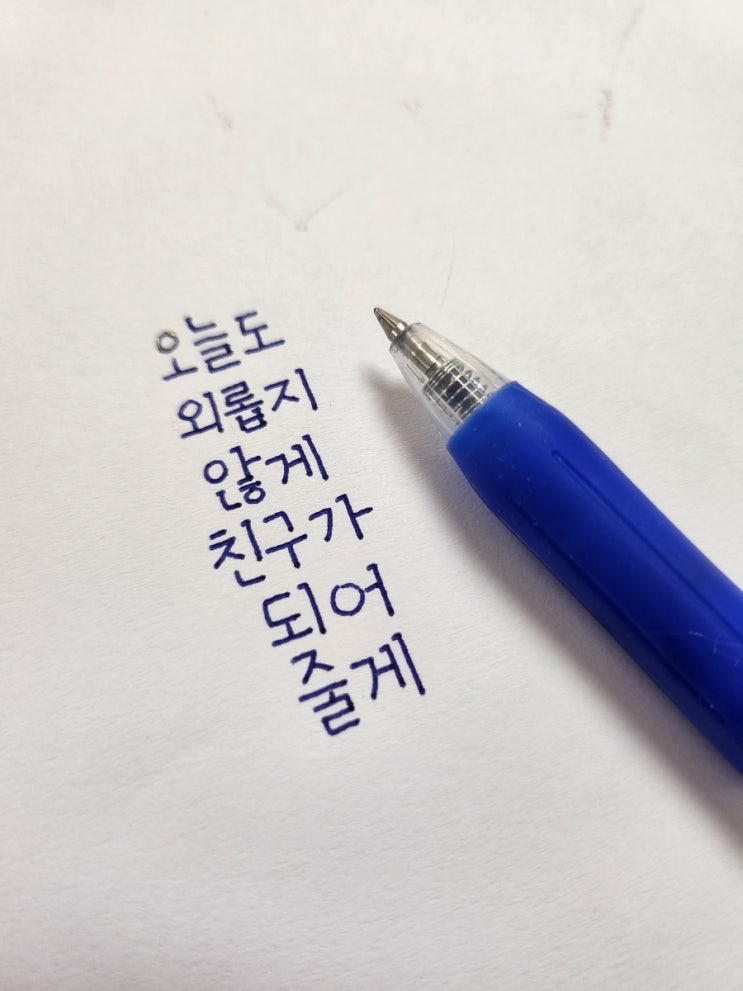 오늘도
외롭지
않게
친구가
되어
줄게